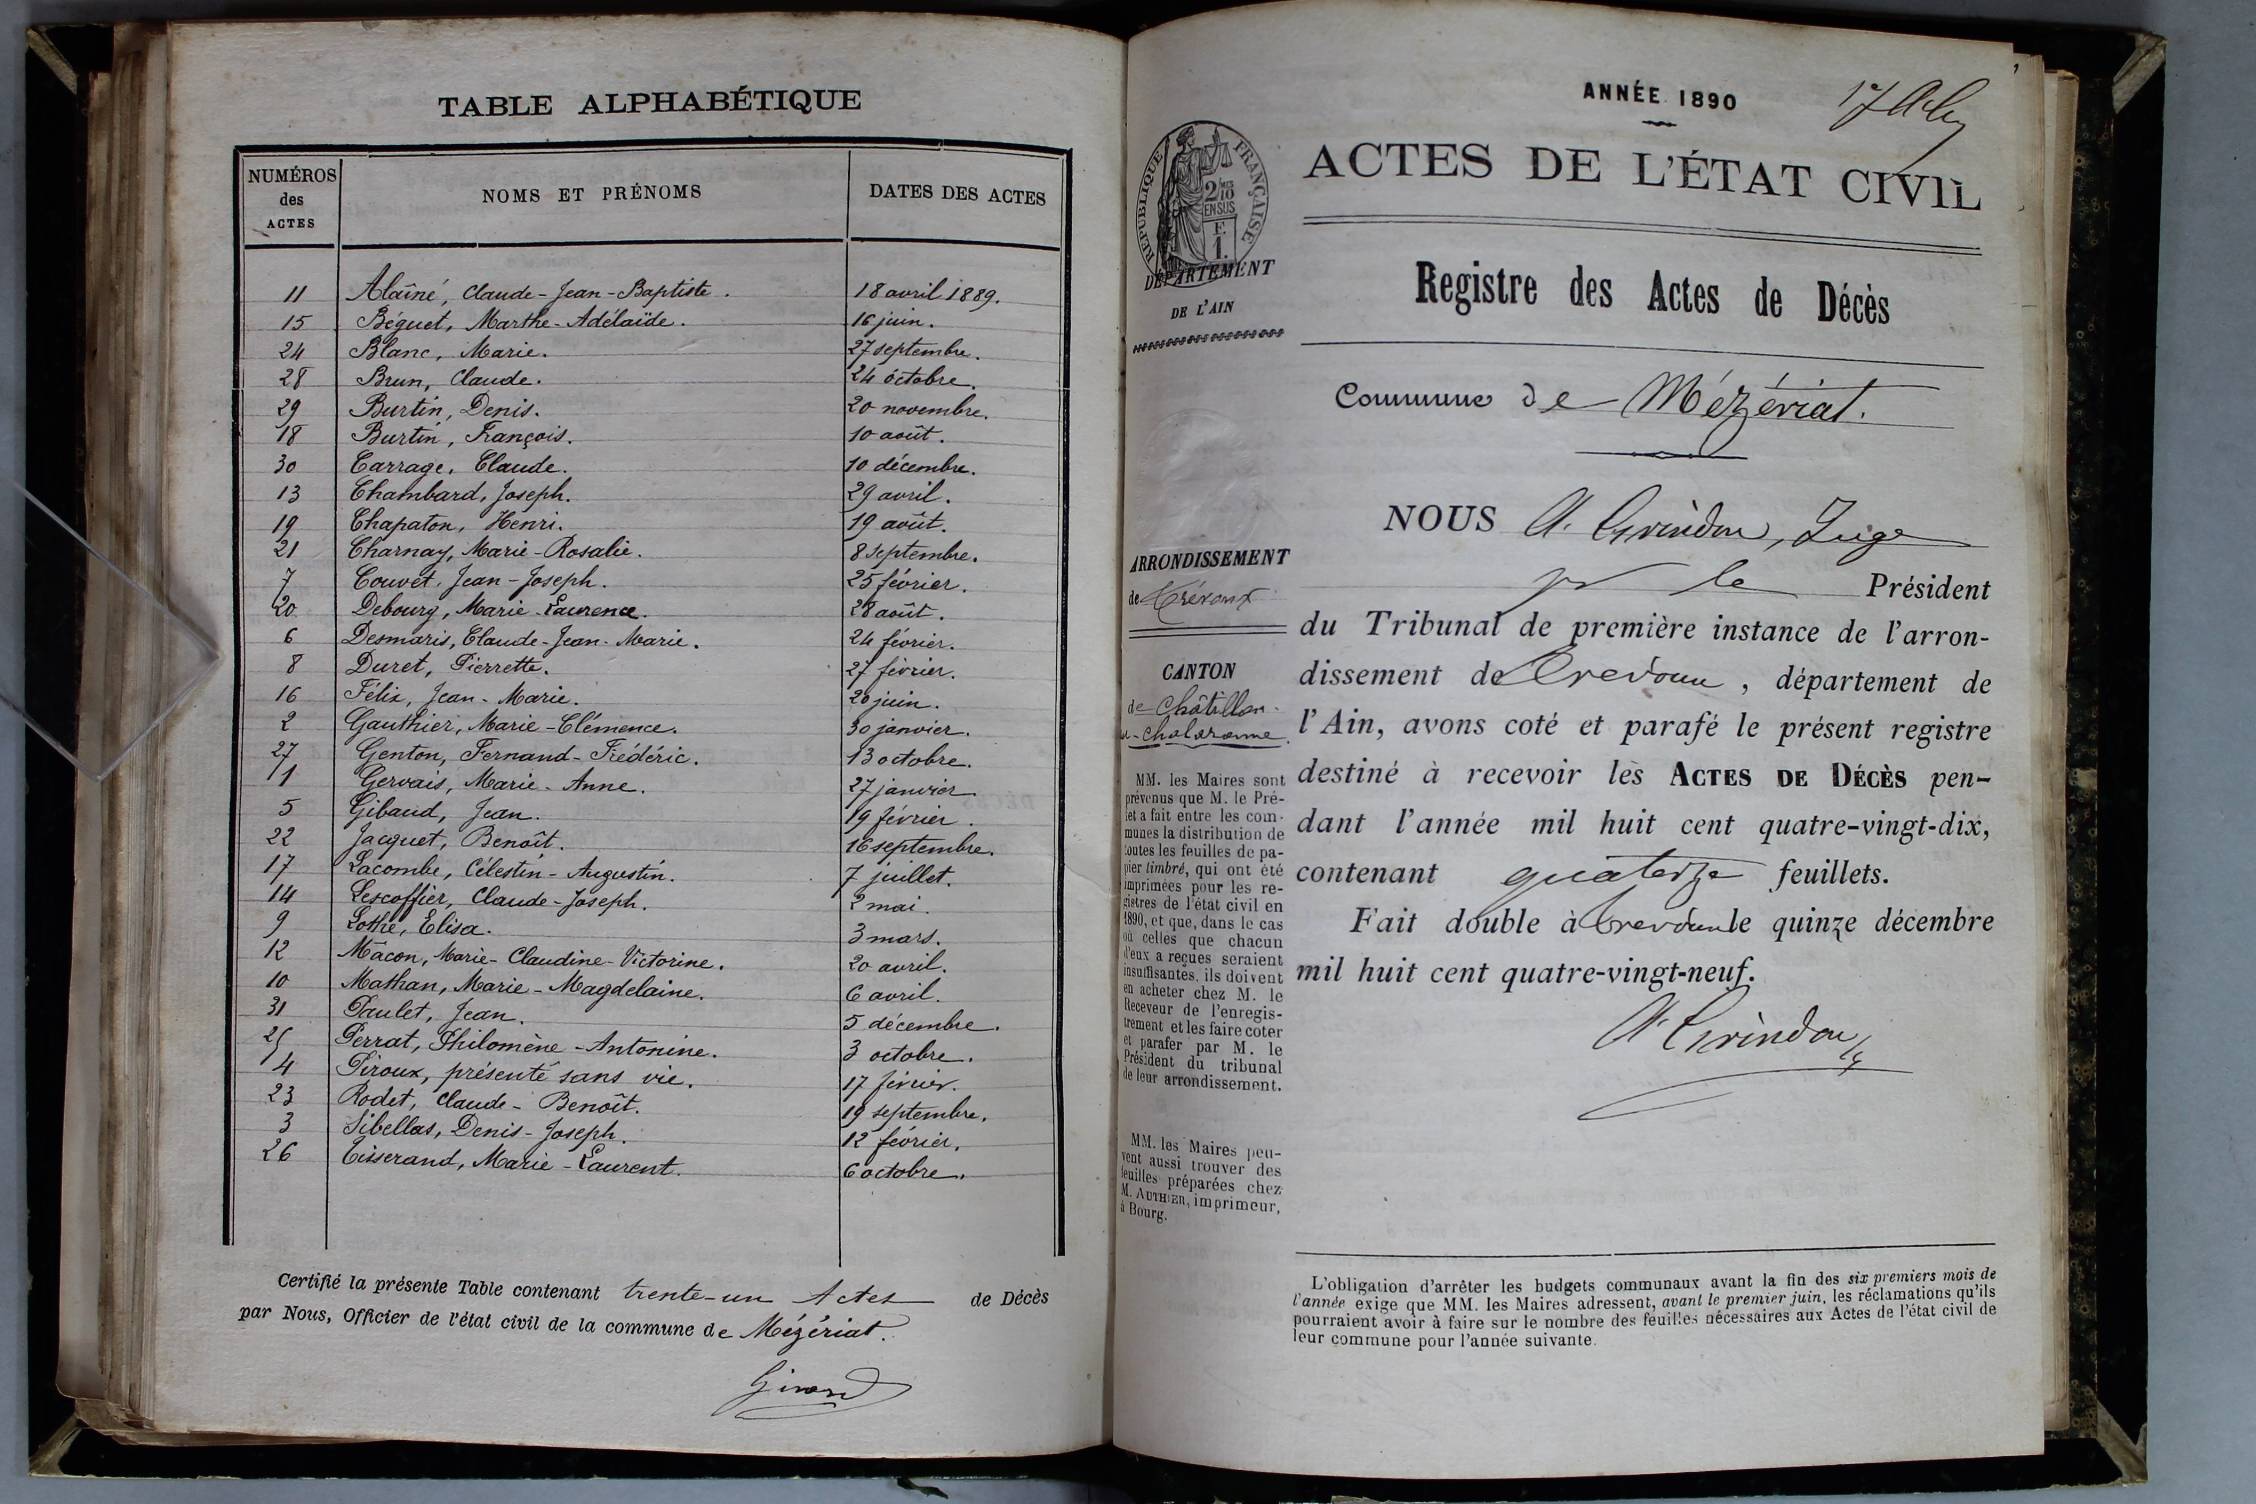 TABLE ALPHABÉTIQUE
NUMÉROS des ACTES NOMS ET PRÉNOMS DATES DES ACTES
11 Alaîné, Claude-Jean-Baptiste. 18 avril 1889.
15 Béguet, Marthe-Adélaïde. 16 juin.
24 Blanc, Marie. 27 septembre.
28 Brun, Claude. 24 octobre.
29 Burtin, Denis. 20 novembre.
18 Burtin, François. 10 août.
30 Carrage, Claude. 10 décembre.
13 Chambard, Joseph. 29 avril.
19 Chapaton, Henri. 19 août.
21 Charnay, Marie-Rosalie. 8 septembre.
7 Couvet, Jean-Joseph. 25 février.
20 Debourg, Marie-Laurence. 28 août.
6 Desmaris, Claude-Jean-Marie. 24 février.
8 Duret, Pierrette. 27 février.
16 Félix, Jean-Marie. 20 juin.
2 Gauthier, Marie-Clémence. 30 janvier.
27 Genton, Fernand-Frédéric. 13 octobre.
1 Gervais, Marie-Anne. 27 janvier
5 Gibaud, Jean. 19 février.
22 Jacquet, Benoît. 16 septembre.
17 Lacombe, Célestin-Augustin. 7 juillet.
14 Lescoffier, Claude-Joseph. 2 mai.
9 Lothe, Elisa. 3 mars.
12 Mâcon, Marie-Claudine-Victorine. 20 avril.
10 Mathan, Marie-Magdelaine. 6 avril.
31 Paulet, Jean. 5 décembre.
25 Perrat, Philomène-Antonine. 3 octobre.
4 Piroux, présenté sans vie. 17 février.
23 Rodet, Claude-Benoît. 19 septembre.
3 Sibellas, Denis-Joseph. 12 février.
26 Tisserand, Marie-Laurent. 6 octobre.
Certifié la présente Table contenant trente-un Actes de Décès
par Nous, Officier de l'état civil de la commune de Mézériat.
Girard
ANNÉE 1890
ACTES DE L'ÉTAT CIVIL
RÉPUBLIQUE FRANÇAISE
2/10
EN SUS
F.
1.
DÉPARTEMENT
DE L'AIN
Registre des Actes de Décès
Commune de Mézériat.
NOUS A. Grindon, Juge
pr le Président
du Tribunal de première instance de l'arron-
dissement de Trévoux, département de
l'Ain, avons coté et parafé le présent registre
destiné à recevoir les ACTES DE DÉCÈS pen-
dant l'année mil huit cent quatre-vingt-dix,
contenant quatorze feuillets.
Fait double à Trévoux le quinze décembre
mil huit cent quatre-vingt-neuf.
A. Grindon
ARRONDISSEMENT
de Trévoux
CANTON
de Châtillon-
s-Chalaronne.
MM. les Maires sont
prévenus que M. le Pré-
fet a fait entre les com-
munes la distribution de
toutes les feuilles de pa-
pier timbré, qui ont été
imprimées pour les re-
gistres de l'état civil en
1890, et que, dans le cas
où celles que chacun
d'eux a reçues seraient
insuffisantes, ils doivent
en acheter chez M. le
Receveur de l'enregis-
trement et les faire coter
et parafer par M. le
Président du tribunal
de leur arrondissement.
MM. les Maires peu-
vent aussi trouver des
feuilles préparées chez
M. AUTHIER, imprimeur,
à Bourg.
L'obligation d'arrêter les budgets communaux avant la fin des six premiers mois de
l'année exige que MM. les Maires adressent, avant le premier juin, les réclamations qu'ils
pourraient avoir à faire sur le nombre des feuilles nécessaires aux Actes de l'état civil de
leur commune pour l'année suivante.